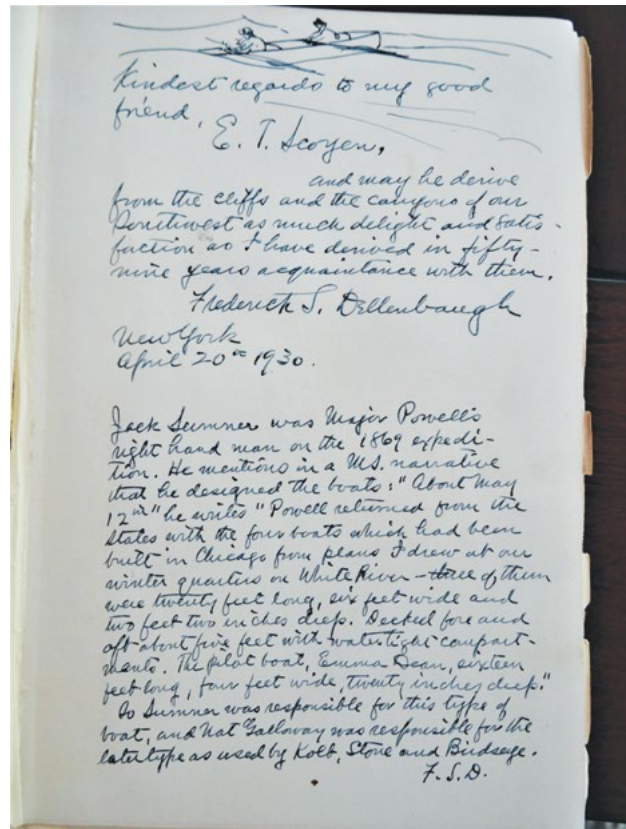 Kindest regards to my good
friend,
E. T. Scoyen,
and may he derive
from the cliffs and the canyons of our
Southwest as much delight and satis-
faction as I have derived in fifty-
nine years acquaintance with them.
Frederick S. Dellenbaugh
New York
April 20th 1930.
Jack Sumner was Major Powell's
right hand man on the 1869 expedi-
tion. He mentions in a MS. narrative
that he designed the boats: "About May
12th" he writes "Powell returned from the
States with the four boats which had been
built in Chicago from plans I drew at our
winter quarters on White River - three of them
were twenty feet long, six feet wide and
two feet two inches deep. Decked fore and
aft about five feet with watertight compart-
ments. The pilot boat, Emma Dean, sixteen
feet long, four feet wide, twenty inches deep."
So Sumner was responsible for this type of
boat, and Nat Galloway was responsible for the
later type as used by Kolb, Stone and Birdseye.
F.S.D.